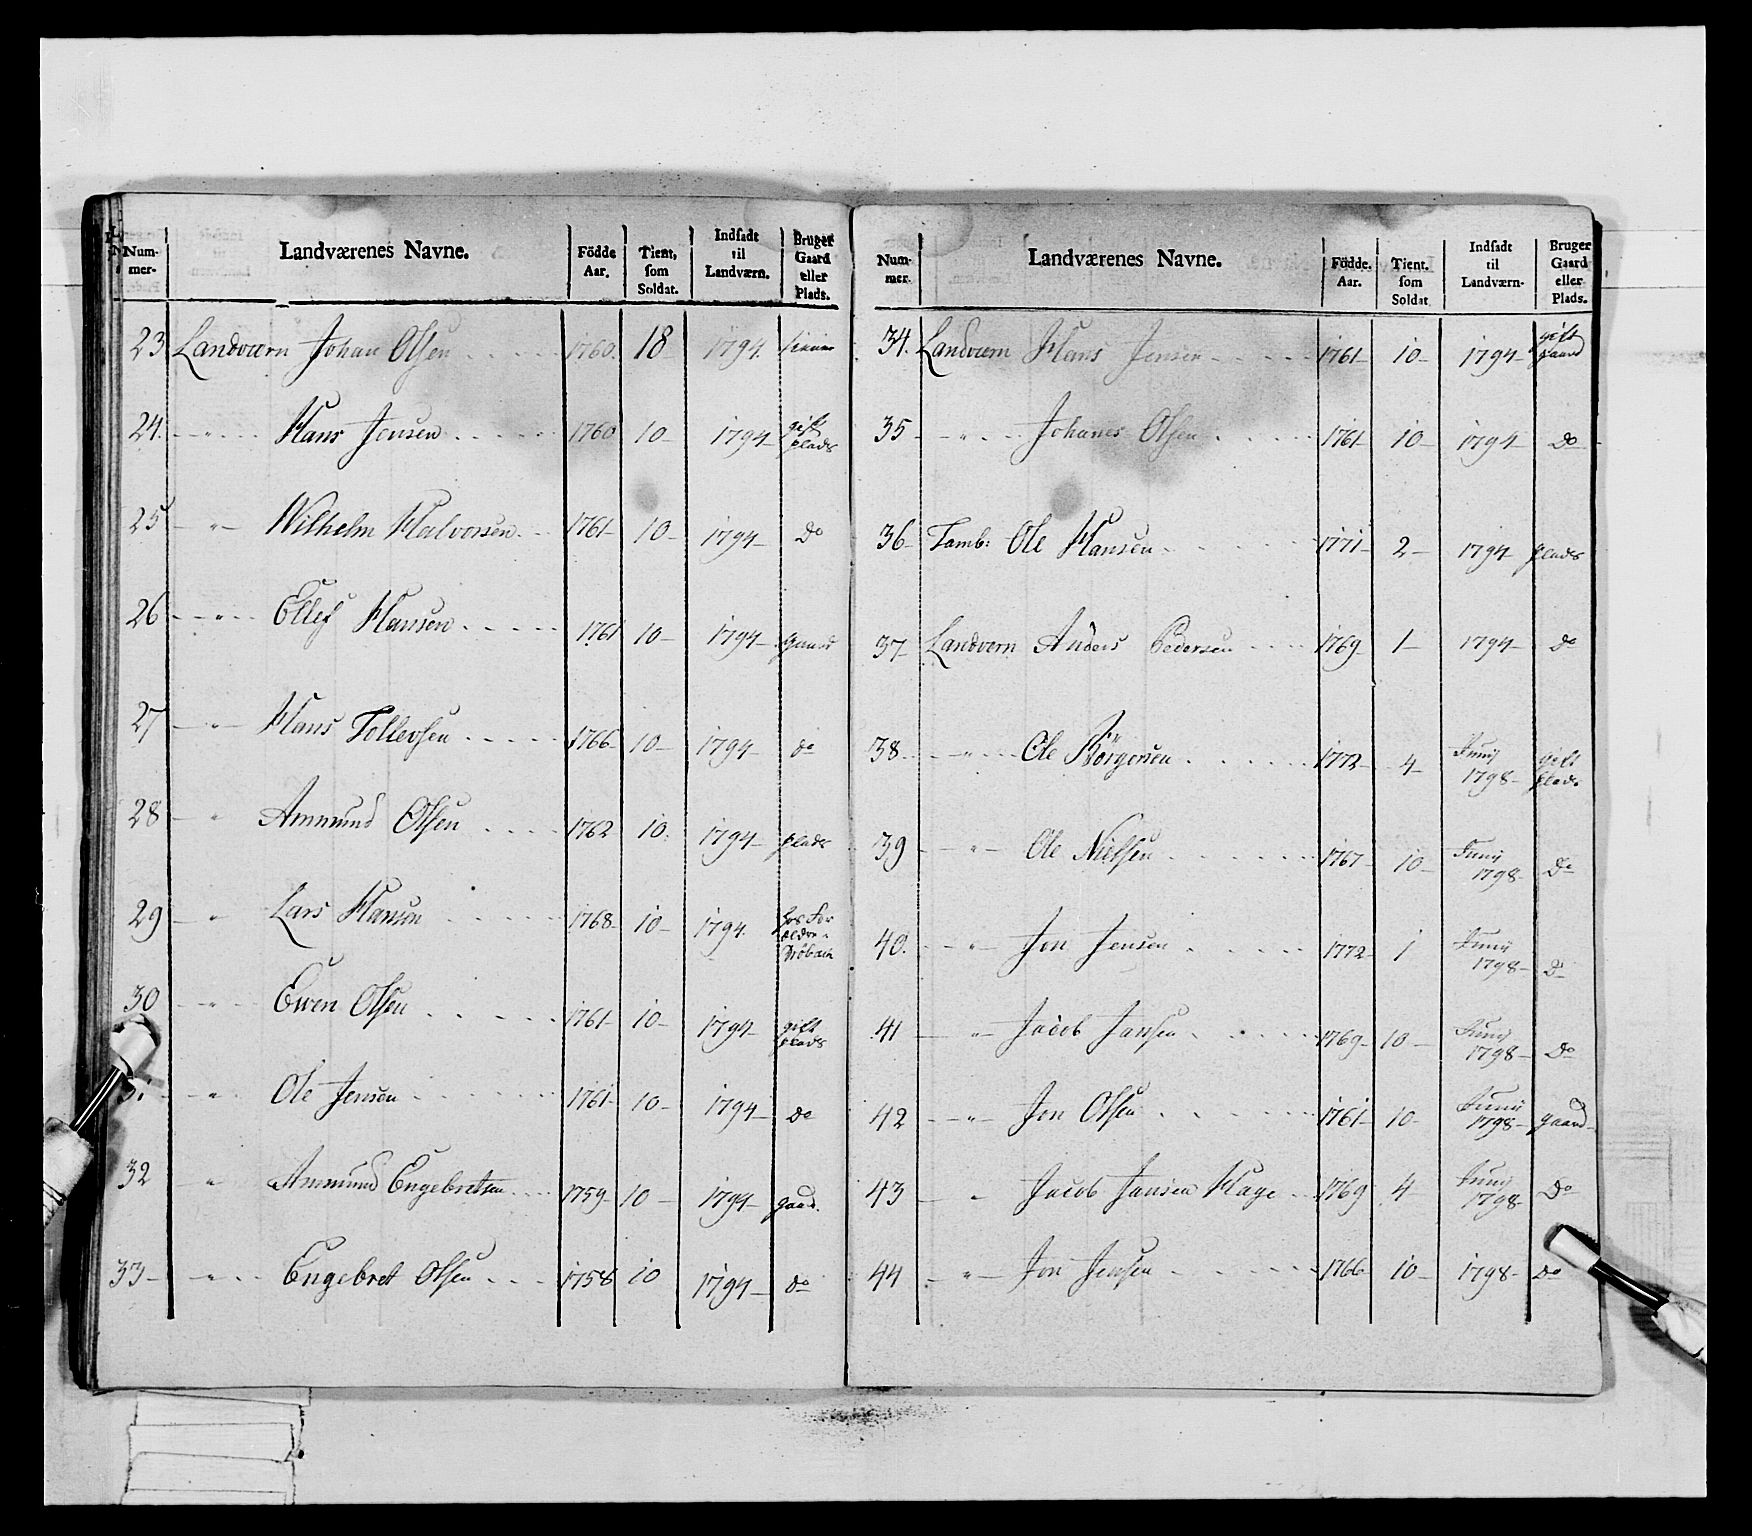 Num-mer- | Landværenes Navne. | Födde Aar. | Tient, som Soldat. | Indsadt til Landværn. | Bruger Gaard eller Plads.
23 Landværn Johan Olsen 1760. 18 1794.
24. Hans Jensen 1760 10- 1794- gift plads
25 Wilhelm Halvorsen 1761- 10- 1794- do
26 Ellef Hansen 1761 10- 1794- gaard
27 Hans Tollevsen 1766- 10- 1794- do
28 Ammund Olsen 1762 10. 1794- plads
29 Lars Hansen 1768- 10- 1794. hos For ældre
30 Ewen Olsen 1761- 10- 1794- gift plads
31 Ole Jensen 1761- 10- 1794- do
32 Ammund Engebretsen 1759- 10- 1794- gaard.
33- Engebret Olsen 1758 10 1794- do
Num-mer. | Landværenes Navne. | Födde. Aar. | Tient. som Soldat | Indsadt til Landværn- | Bruger Gaard eller Plads.
34. Landværn Hans Jensen 1761- 10- 1794- gift gaard
35 Johanes Olsen 1761- 10- 1794- do
36- Tamb: Ole Hansen 1771- 2- 1794- plads
37- Landvern Anders Pedersen 1769- 1- 1794- do
38- Ole Börgersen 1772- 4- Junij 1798- gift plads
39 Ole Nielsen 1767- 10- Junij 1798- Do
40. Jon Jensen 1772- 1 Junij 1798- Do
41 Jacob Jansen 1769- 10- Junij 1798- Do
42 Jon Olsen 1761- 10- Junij 1798- gaard-
43 Jacob Jansen Hage 1769 4- Junij 1798- Do
44 Jon Jensen 1766- 10- 1798- Do